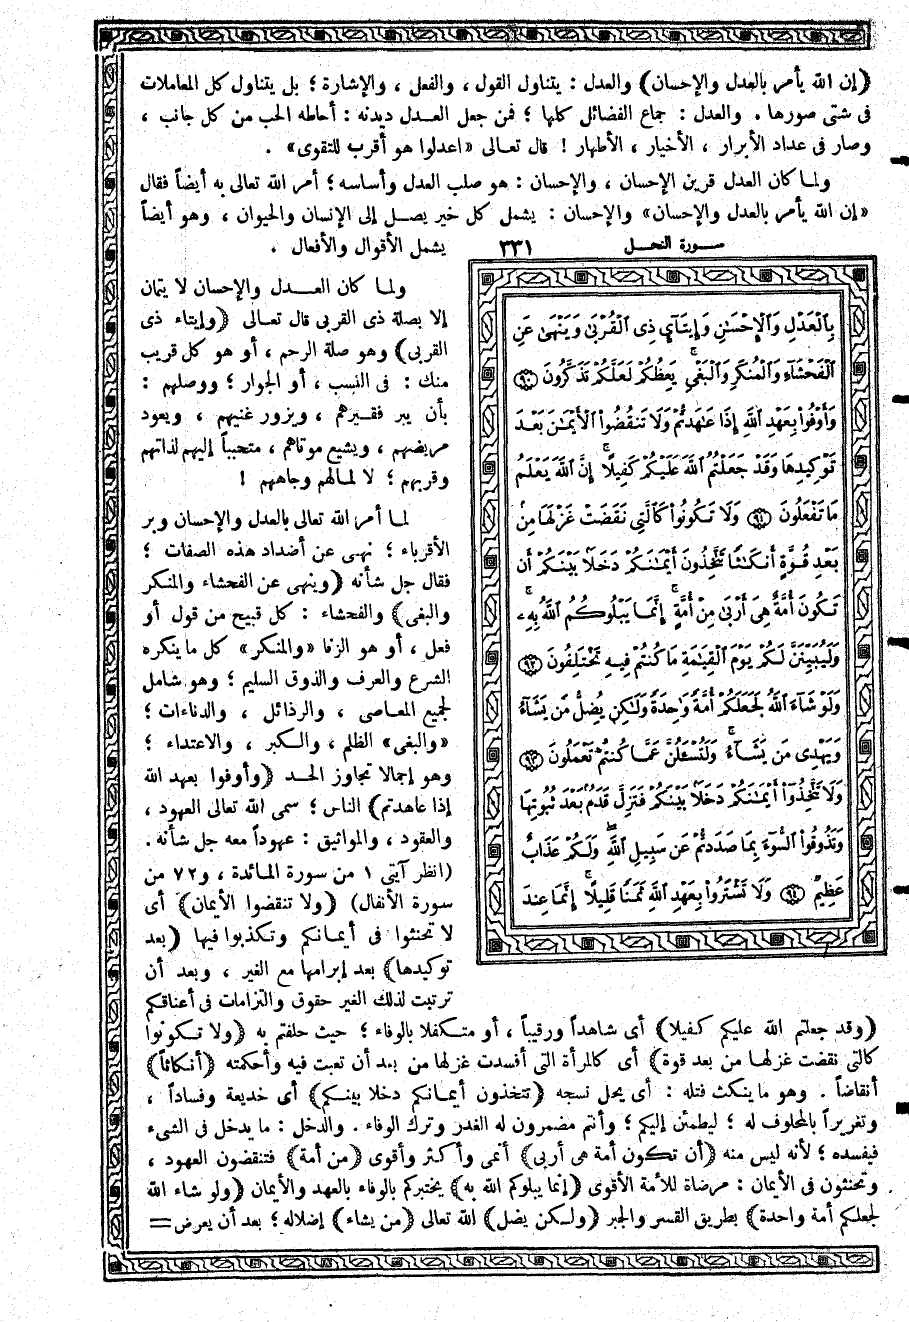 (إن الله يأمر بالعدل والإحسان) والعدل : يتناول القول ، والفعل ، والإشارة ؛ بل يتناول كل المعاملات
فى شتى صورها . والعدل : جماع الفضائل كلها ؛ فمن جعل العـدل ديدنه : أحاطه الحب من كل جانب ،
وصار فى عداد الأبرار ، الأخيار ، الأطهار ! قال تعالى «اعدلوا هو أقرب للتقوى» .
ولما كان العدل قرين الإحسان ، والإحسان : هو صلب العدل وأساسه ؛ أمر الله تعالى به أيضاً فقال
«إن الله يأمر بالعدل والإحسان» والإحسان : يشمل كل خير يصل إلى الإنسان والحيوان ، وهو أيضاً
يشمل الأقوال والأفعال .
سورة النحل ٣٣١
بِالْعَدْلِ وَالْإِحْسَٰنِ وَإِيتَآئِ ذِى الْقُرْبَىٰ وَيَنْهَىٰ عَنِ
الْفَحْشَآءِ وَالْمُنكَرِ وَالْبَغْىِ ۚ يَعِظُكُمْ لَعَلَّكُمْ تَذَكَّرُونَ ۝٩٠
وَأَوْفُوا۟ بِعَهْدِ اللَّهِ إِذَا عَٰهَدتُّمْ وَلَا تَنقُضُوا۟ الْأَيْمَٰنَ بَعْدَ
تَوْكِيدِهَا وَقَدْ جَعَلْتُمُ اللَّهَ عَلَيْكُمْ كَفِيلًا ۚ إِنَّ اللَّهَ يَعْلَمُ
مَا تَفْعَلُونَ ۝٩١ وَلَا تَكُونُوا۟ كَالَّتِى نَقَضَتْ غَزْلَهَا مِنۢ
بَعْدِ قُوَّةٍ أَنكَٰثًا تَتَّخِذُونَ أَيْمَٰنَكُمْ دَخَلًۢا بَيْنَكُمْ أَن
تَكُونَ أُمَّةٌ هِىَ أَرْبَىٰ مِنْ أُمَّةٍ ۚ إِنَّمَا يَبْلُوكُمُ اللَّهُ بِهِۦ ۚ
وَلَيُبَيِّنَنَّ لَكُمْ يَوْمَ الْقِيَٰمَةِ مَا كُنتُمْ فِيهِ تَخْتَلِفُونَ ۝٩٢
وَلَوْ شَآءَ اللَّهُ لَجَعَلَكُمْ أُمَّةً وَٰحِدَةً وَلَٰكِن يُضِلُّ مَن يَشَآءُ
وَيَهْدِى مَن يَشَآءُ ۚ وَلَتُسْـَٔلُنَّ عَمَّا كُنتُمْ تَعْمَلُونَ ۝٩٣
وَلَا تَتَّخِذُوٓا۟ أَيْمَٰنَكُمْ دَخَلًۢا بَيْنَكُمْ فَتَزِلَّ قَدَمٌۢ بَعْدَ ثُبُوتِهَا
وَتَذُوقُوا۟ السُّوٓءَ بِمَا صَدَدتُّمْ عَن سَبِيلِ اللَّهِ ۖ وَلَكُمْ عَذَابٌ
عَظِيمٌ ۝٩٤ وَلَا تَشْتَرُوا۟ بِعَهْدِ اللَّهِ ثَمَنًا قَلِيلًا ۚ إِنَّمَا عِندَ
ولما كان العـدل والإحسان لا يتمان
إلا بصلة ذى القربى قال تعالى (وإيتاء ذى
القربى) وهو صلة الرحم ، أو هو كل قريب
منك : فى النسب ، أو الجوار ؛ ووصلهم :
بأن يبر فقيرهم ، ويزور غنيهم ، ويعود
مريضهم ، ويشيع موتاهم ، متحبباً إليهم لذاتهم
وقربهم ؛ لا لمالهم وجاههم !
لما أمر الله تعالى بالعدل والإحسان وبر
الأقرباء ؛ نهى عن أضداد هذه الصفات ؛
فقال جل شأنه (وينهى عن الفحشاء والمنكر
والبغى) والفحشاء : كل قبيح من قول أو
فعل ، أو هو الزنا «والمنكر» كل ما ينكره
الشرع والعرف والذوق السليم ؛ وهو شامل
لجميع المعاصى ، والرذائل ، والدناءات ؛
«والبغى» الظلم ، والكبر ، والاعتداء ؛
وهو إجمالا تجاوز الحد (وأوفوا بعهد الله
إذا عاهدتم) الناس ؛ سمى الله تعالى العهود ،
والعقود ، والمواثيق : عهوداً معه جل شأنه .
(انظر آيتى ١ من سورة المائدة ، و٧٢ من
سورة الأنفال) (ولا تنقضوا الأيمان) أى
لا تحنثوا فى أيمانكم وتكذبوا فيها (بعد
توكيدها) بعد إبرامها مع الغير ، وبعد أن
ترتبت لذلك الغير حقوق والتزامات فى أعناقكم
(وقد جعلتم الله عليكم كفيلا) أى شاهداً ورقيباً ، أو متكفلا بالوفاء ؛ حيث حلفتم به (ولا تكونوا
كالتى نقضت غزلها من بعد قوة) أى كالمرأة التى أفسدت غزلها من بعد أن تعبت فيه وأحكمته (أنكاثاً)
أنقاضاً . وهو ما ينكث فتله : أى يحل نسجه (تتخذون أيمانكم دخلا بينكم) أى خديعة وفساداً ،
وتغريراً بالمحلوف له ؛ ليطمئن إليكم ؛ وأنتم مضمرون له الغدر وترك الوفاء . والدخل : ما يدخل فى الشىء
فيفسده ؛ لأنه ليس منه (أن تكون أمة هى أربى) أنمى وأكثر وأقوى (من أمة) فتنقضون العهود ،
وتحنثون فى الأيمان : مرضاة للأمة الأقوى (إنما يبلوكم الله به) يختبركم بالوفاء بالعهد والأيمان (ولو شاء الله
لجعلكم أمة واحدة) بطريق القسر والجبر (ولكن يضل) الله تعالى (من يشاء) إضلاله ؛ بعد أن يعرض =